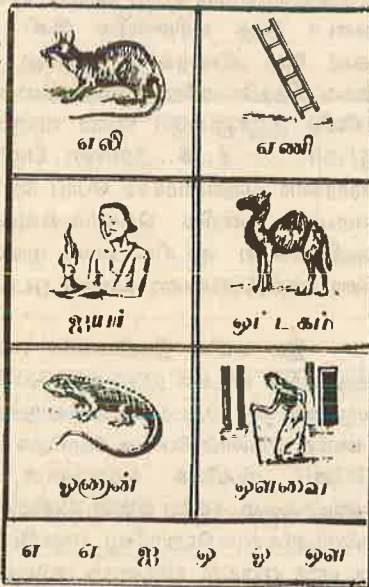 எலி ஏணி
ஐயர் ஒட்டகம்
ஓணான் ஔவை
எ ஏ ஐ ஒ ஓ ஔ